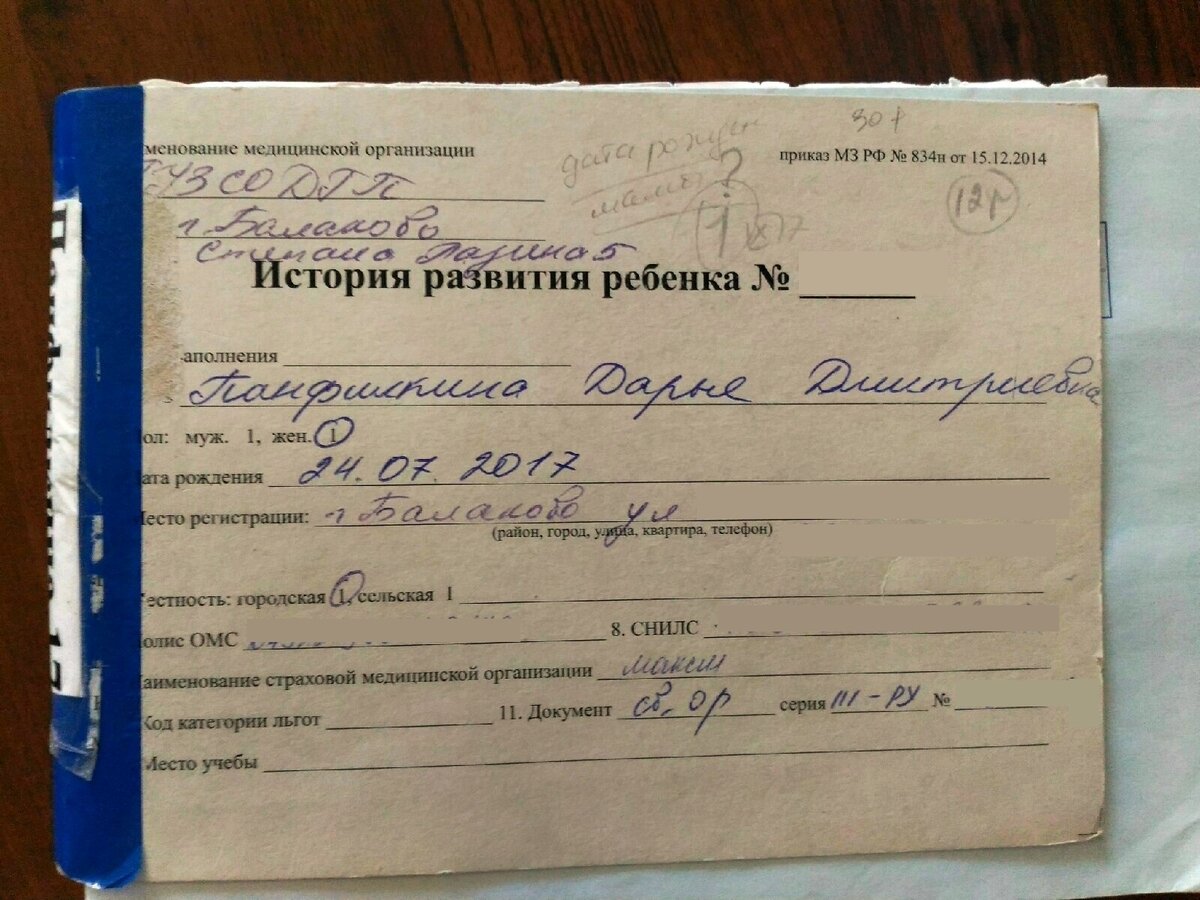 30 г
менование медицинской организации
дата рожден
приказ МЗ РФ № 834н от 15.12.2014
ГУЗ СО ДГП
мамы ?
12 г
г Балаково
1
Степана Разина 5
История развития ребенка №
аполнения
Панфилкина Дарье Дмитриевна
ол: муж. 1, жен. 1
ата рождения 24.07.2017
Место регистрации: г Балаково ул
(район, город, улица, квартира, телефон)
естность: городская 1, сельская 1
олис ОМС 8. СНИЛС
аименование страховой медицинской организации макси
Код категории льгот 11. Документ св. ор серия III-РУ №
Место учебы